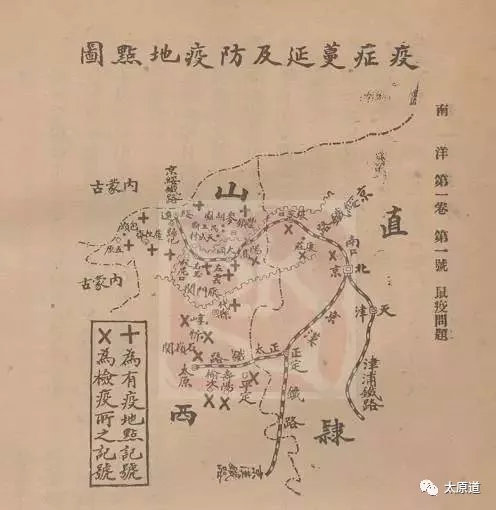 疫症蔓延及防疫地點圖
南洋 第一卷 第一號 鼠疫問題
直隸
山西
內蒙古
內蒙古
京綏鐵路
京綏鐵路
南口
北京
天津
津浦鐵路
京漢鐵路
正定
正太鐵路
平定
壽陽
榆次
太原
石嶺關
忻
崞
代
雁門關
張家口
包頭
五原
+為有疫地點記號
×為檢疫所之記號
太原道